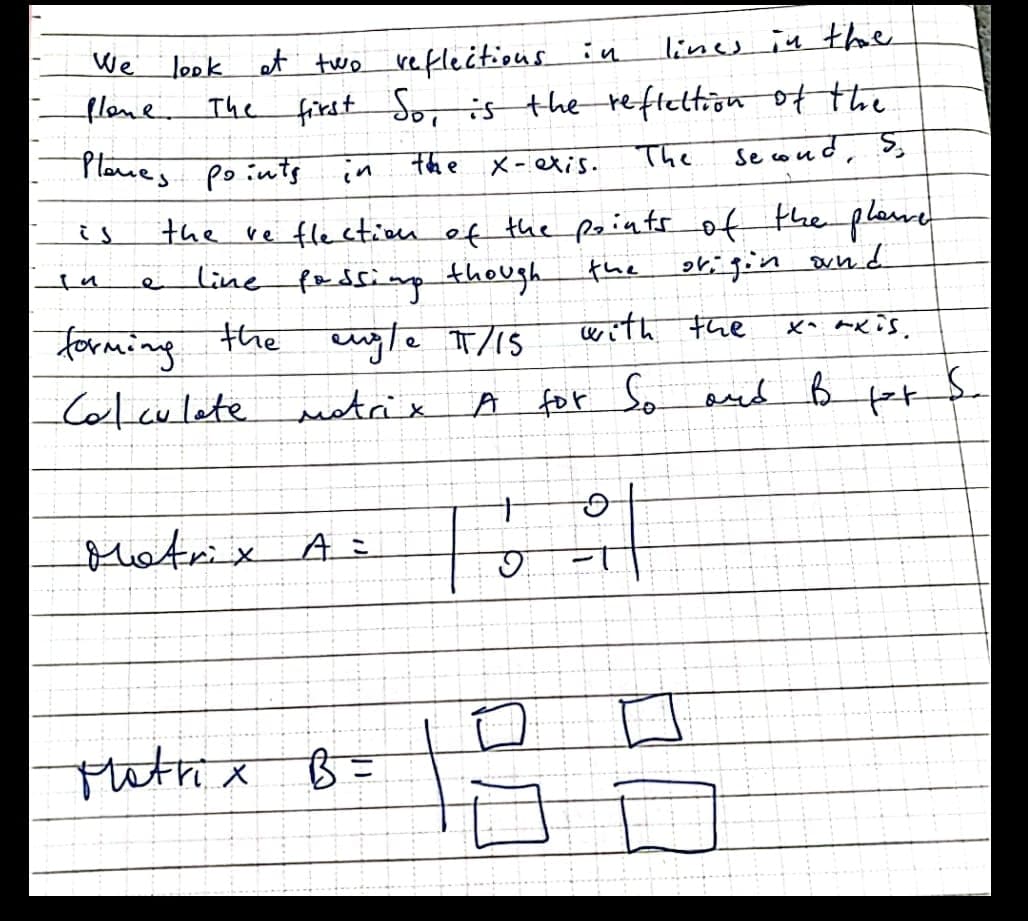 We look at two reflections in lines in the
plane. The first So, is the reflection of the
Planes points in the x-axis. The second, S,
is the reflection of the points of the plane
in a line passing though the origin and
forming the angle π/15 with the x-axis.
Calculate matrix A for So and B for S.
Matrix A = | 1 0 |
| 0 -1 |
Matrix B =